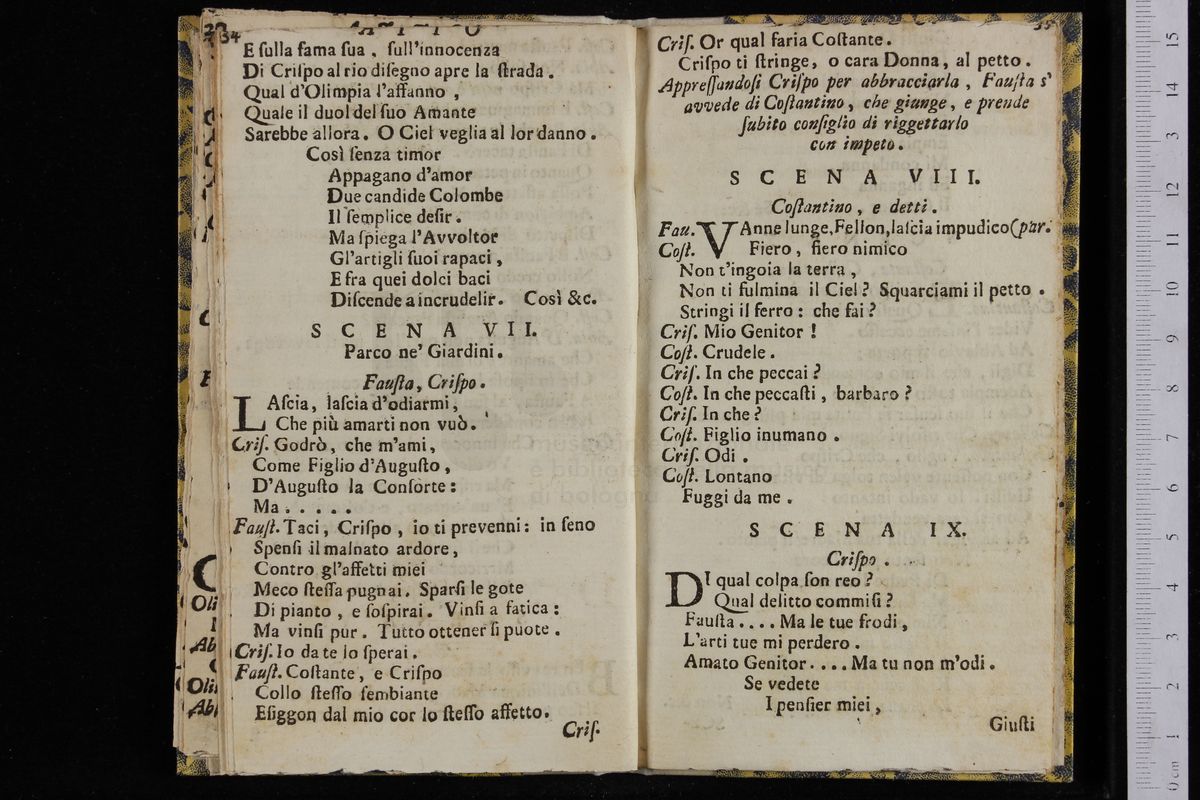 34
E ſulla fama ſua, ſull'innocenza
Di Criſpo al rio diſegno apre la ſtrada.
Qual d'Olimpia l'affanno,
Quale il duol del ſuo Amante
Sarebbe allora. O Ciel veglia al lor danno.
Così ſenza timor
Appagano d'amor
Due candide Colombe
Il ſemplice deſir.
Ma ſpiega l'Avvoltor
Gl'artigli ſuoi rapaci,
E fra quei dolci baci
Diſcende a incrudelir. Così &c.
SCENA VII.
Parco ne' Giardini.
Fauſta, Criſpo.
LAſcia, laſcia d'odiarmi,
Che più amarti non vuò.
Criſ. Godrò, che m'ami,
Come Figlio d'Auguſto,
D'Auguſto la Conſorte:
Ma.....
Fauſt. Taci, Criſpo, io ti prevenni: in ſeno
Spenſi il malnato ardore,
Contro gl'affetti miei
Meco ſteſſa pugnai. Sparſi le gote
Di pianto, e ſoſpirai. Vinſi a fatica:
Ma vinſi pur. Tutto ottener ſi puote.
Criſ. Io da te lo ſperai.
Fauſt. Coſtante, e Criſpo
Collo ſteſſo ſembiante
Eſiggon dal mio cor lo ſteſſo affetto.
Criſ.
35
Criſ. Or qual faria Coſtante.
Criſpo ti ſtringe, o cara Donna, al petto.
Appreſſandoſi Criſpo per abbracciarla, Fauſta s'
avvede di Coſtantino, che giunge, e prende
ſubito conſiglio di riggettarlo
con impeto.
SCENA VIII.
Coſtantino, e detti.
Fau. VAnne lunge, Fellon, laſcia impudico (par.
Coſt. Fiero, fiero nimico
Non t'ingoia la terra,
Non ti fulmina il Ciel? Squarciami il petto.
Stringi il ferro: che fai?
Criſ. Mio Genitor!
Coſt. Crudele.
Criſ. In che peccai?
Coſt. In che peccaſti, barbaro?
Criſ. In che?
Coſt. Figlio inumano.
Criſ. Odi.
Coſt. Lontano
Fuggi da me.
SCENA IX.
Criſpo.
DI qual colpa ſon reo?
Qual delitto commiſi?
Fauſta.... Ma le tue frodi,
L'arti tue mi perdero.
Amato Genitor.... Ma tu non m'odi.
Se vedete
I penſier miei,
Giuſti